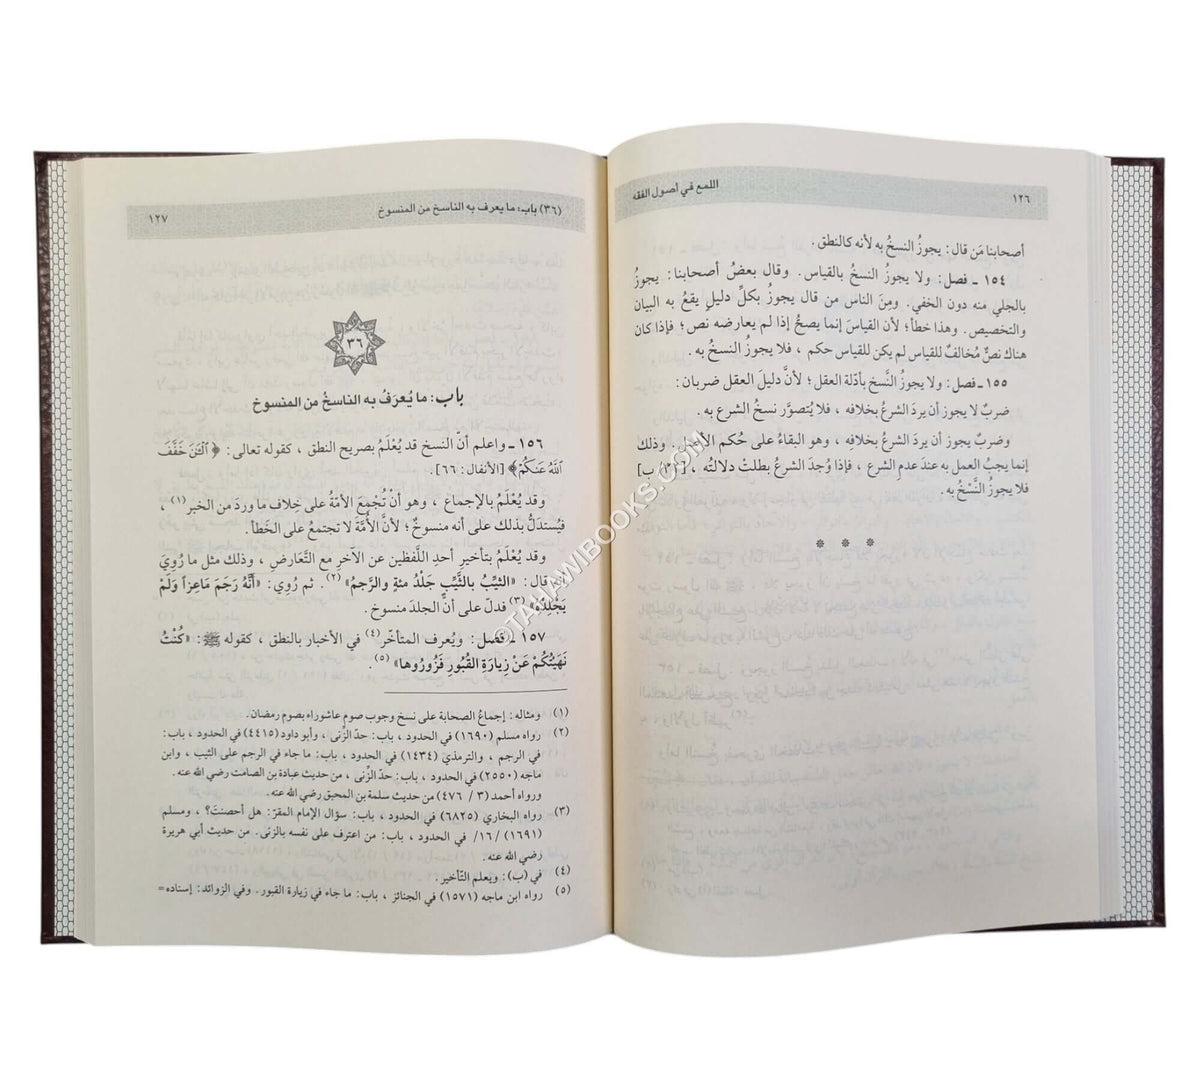 ١٢٦
اللمع في أصول الفقه
أصحابنا مَن قال: يجوزُ النسخُ به لأنه كالنطق .
١٥٤ ـ فصل: ولا يجوزُ النسخُ بالقياس. وقال بعضُ أصحابنا: يجوزُ
بالجلي منه دون الخفي. ومِنَ الناس من قال يجوزُ بكلِّ دليلٍ يقعُ به البيان
والتخصيص. وهذا خطأ؛ لأن القياسَ إنما يصحُّ إذا لم يعارضه نص؛ فإذا كان
هناك نصٌّ مُخالفٌ للقياس لم يكن للقياس حكم ، فلا يجوزُ النسخُ به .
١٥٥ ـ فصل: ولا يجوزُ النَّسخ بأدّلة العقل؛ لأنَّ دليلَ العقل ضربان:
ضربٌ لا يجوز أن يردَ الشرعُ بخلافه ، فلا يُتصوَّر نسخُ الشرع به .
وضربٍ يجوز أن يردَ الشرعُ بخلافِه ، وهو البقاءُ على حُكم الأصل. وذلك
إنما يجبُ العمل به عند عدمِ الشرع ، فإذا وُجدَ الشرعُ بطلتْ دلالتُه ، ب]
فلا يجوزُ النَّسْخُ به .
* * *
(٣٦) باب: ما يعرف به الناسخ من المنسوخ
١٢٧
٣٦
باب: ما يُعرَفُ به الناسخُ من المنسوخ
١٥٦ ـ واعلم أنّ النسخ قد يُعْلَمُ بصريح النطق ، كقوله تعالى: ﴿ ٱلْـَٰٔنَ خَفَّفَ
ٱللَّهُ عَنكُمْ﴾ [الأنفال: ٦٦].
وقد يُعْلَمُ بالإجماع ، وهو أنْ تُجْمِعَ الأمّةُ على خِلاف ما وردَ من الخبر(١) ،
فيُستدَلُّ بذلك على أنه منسوخٌ؛ لأنَّ الأُمَّةَ لا تجتمعُ على الخطأ.
وقد يُعْلَمُ بتأخيرِ أحدِ اللَّفظين عن الآخرِ مع التَّعارضِ ، وذلك مثل ما رُوِيَ
أنه قال: «الثيِّبُ بالثَّيِّبِ جَلْدُ مئةٍ والرَّجمُ»(٢) ثم رُوِي: «أَنَّهُ رَجَمَ مَاعِزاً وَلَمْ
يَجْلِدْهُ»(٣) فدلّ على أنَّ الجلدَ منسوخ .
١٥٧ ـ فصل: ويُعرف المتأخّر(٤) في الأخبار بالنطق ، كقوله ﷺ: «كُنْتُ
نَهَيْتُكُمْ عَنْ زِيارَةِ القُبُورِ فَزُورُوها»(٥).
(١) ومثاله: إجماعُ الصحابة على نسخ وجوب صوم عاشوراء بصوم رمضان.
(٢) رواه مسلم (١٦٩٠) في الحدود ، باب: حدّ الزِّنى ، وأبو داود (٤٤١٥) في الحدود ، باب:
في الرجم ، والترمذيّ (١٤٣٤) في الحدود ، باب: ما جاء في الرجم على الثيب ، وابن
ماجه (٢٥٥٠) في الحدود ، باب: حدّ الزِّنى ، من حديث عبادة بن الصامت رضي الله عنه.
ورواه أحمد (٣ / ٤٧٦) من حديث سلمة بن المحبق رضي الله عنه.
(٣) رواه البخاري (٦٨٢٥) في الحدود ، باب: سؤال الإمام المقرّ: هل أحصنت؟ ، ومسلم
(١٦٩١/ ١٦) في الحدود ، باب: من اعترف على نفسه بالزنى. من حديث أبي هريرة
رضي الله عنه.
(٤) في (ب): ويعلم التّأخير .
(٥) رواه ابن ماجه (١٥٧١) في الجنائز ، باب: ما جاء في زيارة القبور. وفي الزوائد: إسناده=
©TAHAWIBOOKS.COM